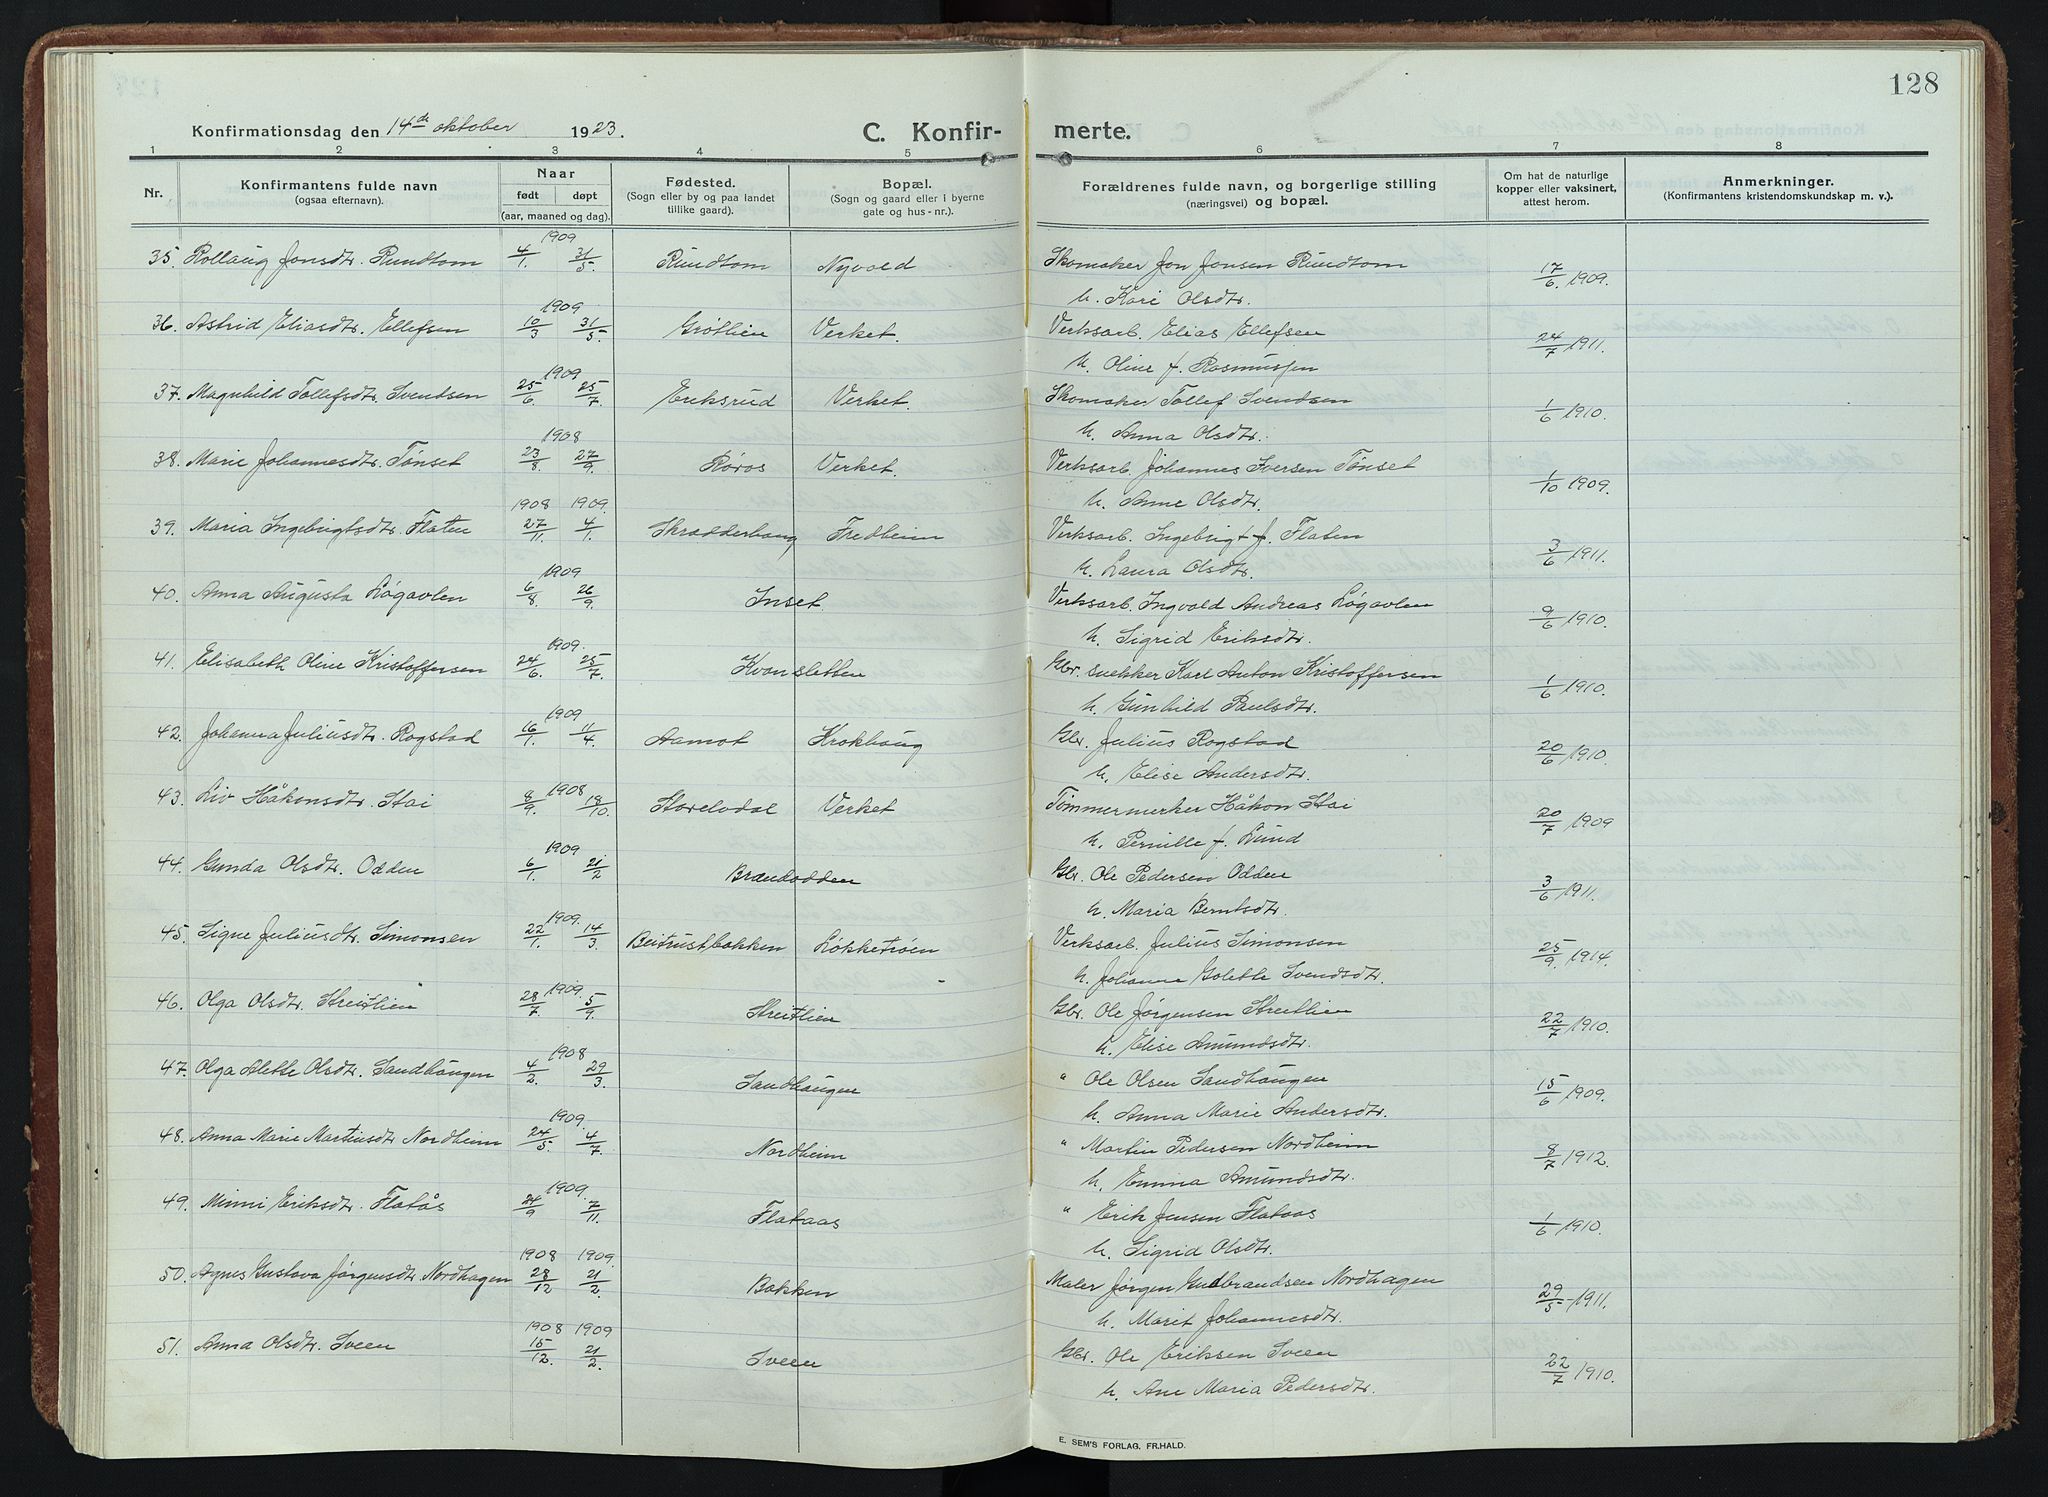 128
Konfirmationsdag den 14de oktober 1923.
C. Konfir- merte.
1 2 3 4 5 6 7 8
Nr.
Konfirmantens fulde navn
(ogsaa efternavn).
Naar
født døpt
(aar, maaned og dag).
Fødested.
(Sogn eller by og paa landet
tillike gaard).
Bopæl.
(Sogn og gaard eller i byerne
gate og hus-nr.).
Forældrenes fulde navn, og borgerlige stilling
(næringsvei) og bopæl.
Om hat de naturlige
kopper eller vaksinert,
attest herom.
Anmerkninger.
(Konfirmantens kristendomskundskap m. v.).
1909
35. Rollaug Jonsdtr. Rundtom 4/1. 31/5. Rundtom Nyvold Skomaker Jon Jonsen Rundtom 17/6. 1909.
h. Kari Olsdtr.
1909
36. Astrid Eliasdtr. Ellefsen 10/3 31/5. Grøtlien Verket. Verksarb. Elias Ellefsen 24/7 1911.
h. Oline f. Rasmussen
1909
37. Magnhild Tollefsdtr. Svendsen 25/6. 25/7. Eriksrud Verket. Skomaker Tollef Svendsen 1/6 1910.
h. Anna Olsdtr.
1908
38. Marie Johannesdtr. Tønset 23/8. 27/9. Røros Verket. Verksarb. Johannes Iversen Tønset 1/10 1909.
h. Anne Olsdtr.
1908 1909.
39. Maria Ingebrigtsdtr. Flaten 27/11. 4/1. Skradderhaug Fredheim Verksarb. Ingebrigt J. Flaten 3/6 1911.
h. Laura Olsdtr.
1909
40. Anna Augusta Løgavlen 6/8. 26/9. Inset Verksarb. Ingvald Andreas Løgavlen 9/6 1910.
h. Sigrid Eriksdtr.
1909.
41. Elisabeth Oline Kristoffersen 24/6. 25/7. Kvansletten Gbr. snekker Karl Anton Kristoffersen 1/6 1910.
h. Gunhild Paulsdtr.
1909
42. Johanna Juliusdtr. Rogstad 16/1. 11/4. Aamot Krokhaug Gbr. Julius Rogstad 20/6 1910.
h. Elise Andersdtr.
1908
43. Liv Håkonsdtr. Stai 8/9. 18/10. Storelvdal Verket Tømmermerker Håkon Stai 20/7 1909
h. Pernille f. Lund
1909
44. Gunda Olsdtr. Odden 6/1. 21/2 Brandodden Gbr. Ole Pedersen Odden 3/6 1911.
h. Maria Berntsdtr.
1909.
45. Signe Juliusdtr. Simonsen 22/1. 14/3. Beitrustbakken Løkketrøen Verksarb. Julius Simonsen 25/9. 1914.
h. Johanne Golette Svendsdtr.
1909.
46. Olga Olsdtr. Streitlien 28/7. 5/9. Streitlien Gbr. Ole Jørgensen Streitlien 22/7 1910.
h. Elise Amundsdtr.
1908
47. Olga Alette Olsdtr. Sandhaugen 4/2. 29/3. Sandhaugen " Ole Olsen Sandhaugen 15/6 1909.
h. Anna Marie Andersdtr.
1909.
48. Anna Marie Martinsdtr Nordheim 24/5. 4/7. Nordheim " Martin Pedersen Nordheim 8/7 1912.
h. Emma Amundsdtr.
1909.
49. Minni Eriksdtr. Flatås 24/9 7/11. Flataas " Erik Jensen Flataas 1/6 1910.
h. Sigrid Olsdtr.
1908 1909.
50. Agnes Gustava Jørgensdtr. Nordhagen 28/12 21/2. Bakken Maler Jørgen Gudbrandsen Nordhagen 29/5 1911.
h. Marit Johannesdtr.
1908 1909
51. Anna Olsdtr. Sveen 15/12. 21/2. Sveen Gbr. Ole Eriksen Sveen 22/7 1910.
h. Ane Maria Pedersdtr.
E. SEM'S FORLAG, FR.HALD.